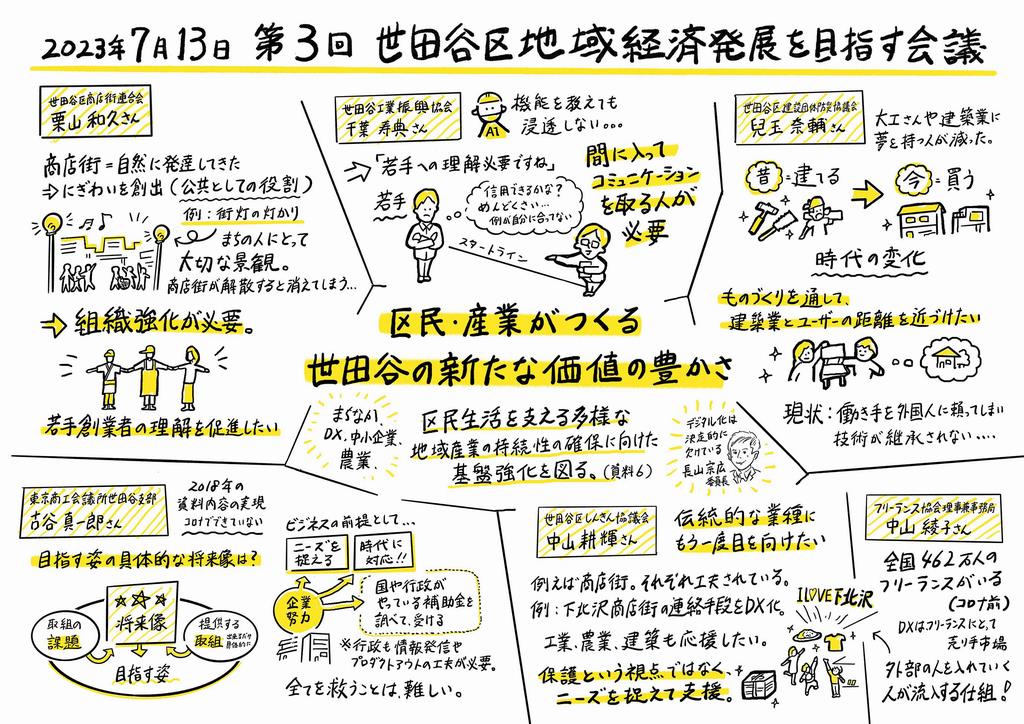 2023年7月13日 第3回 世田谷区地域経済発展を目指す会議
世田谷区商店街連合会
栗山 和久さん
商店街=自然に発達してきた
⇒にぎわいを創出(公共としての役割)
例:街灯の灯かり
まちの人にとって
大切な景観。
商店街が解散すると消えてしまう…
⇒組織強化が必要。
若手創業者の理解を促進したい
世田谷工業振興協会
千葉 寿典さん
AI
機能を教えても
浸透しない…
⇒「若手への理解必要ですね」
若手
信用できるかな?
めんどくさい…
例が自分に合ってない
スタートライン
間に入って
コミュニケーション
を取る人が
必要
世田谷区建設団体防災協議会
兒玉 奈輔さん
大工さんや建築業に
夢を持つ人が減った。
昔=建てる
今=買う
時代の変化
ものづくりを通して、
建築業とユーザーの距離を近づけたい
現状:働き手を外国人に頼ってしまい
技術が継承されない….
区民・産業がつくる
世田谷の新たな価値の豊かさ
まちなか、
DX、中小企業、
農業、
区民生活を支える多様な
地域産業の持続性の確保に向けた
基盤強化を図る。(資料6)
デジタル化は
決定的に
欠けている
長山宗広
委員長
東京商工会議所世田谷支部
古谷 真一郎さん
2018年の
資料内容の実現
コロナでできていない
目指す姿の具体的な将来像は?
将来像
取組の
課題
提供する
取組
出来るだけ
具体的に
目指す姿
ビジネスの前提として…
ニーズを
捉える
時代に
対応!!
企業
努力
国や行政が
やっている補助金を
調べて、受ける
※行政も情報発信や
プロダクトアウトの工夫が必要。
全てを救うことは、難しい。
世田谷区しんきん協議会
中山 耕輝さん
伝統的な業種に
もう一度目を向けたい
例えば商店街。それぞれ工夫されている。
例:下北沢商店街の連絡手段をDX化。
工業、農業、建築も応援したい。
保護という視点ではなく、
ニーズを捉えて支援。
I LOVE 下北沢
フリーランス協会理事兼事務局
中山 綾子さん
全国462万人の
フリーランスがいる
(コロナ前)
DXはフリーランスにとって
売り手市場
外部の人を入れていく
人が流入する仕組!